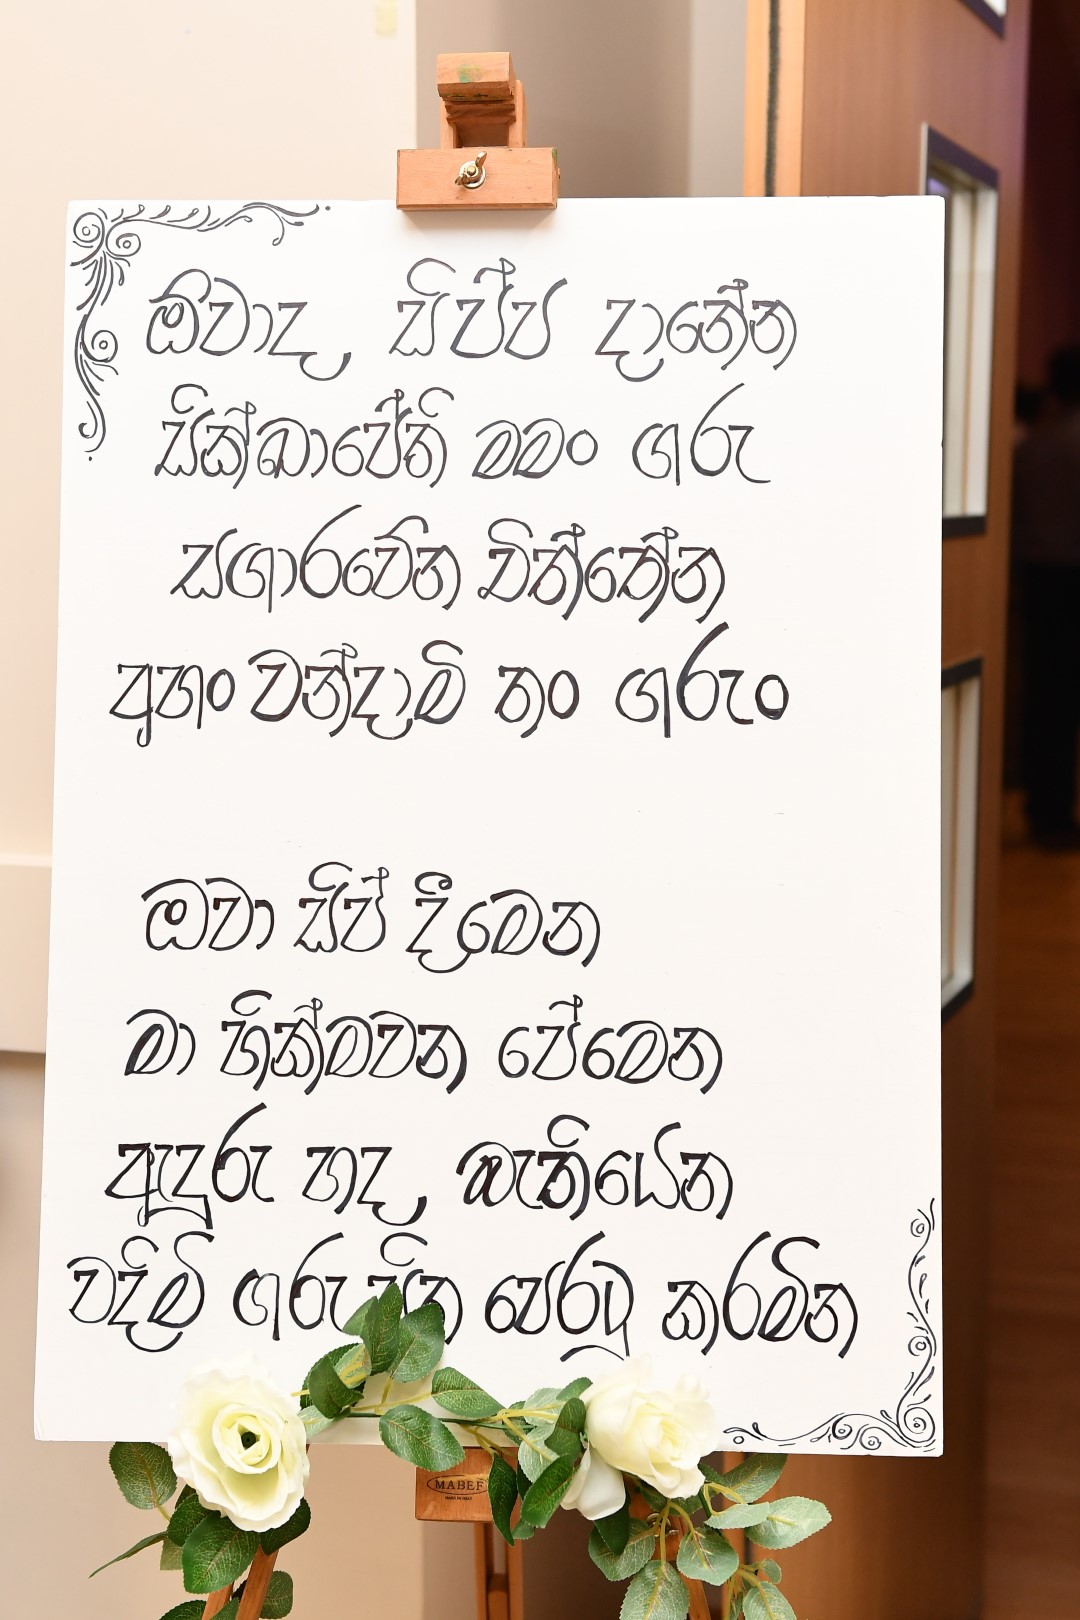 ඕවාද සිප්ප දානේන
සික්ඛාපේති මමං ගරු
සගාරවේන චිත්තේන
අහං වන්දාමි තං ගරුං
ඔවා සිප් දීමෙන
මා හික්මවන පේමෙන
ඇදුරු හද බැතියෙන
වදිමි ගරු පෙරටු කරමින
MABEF